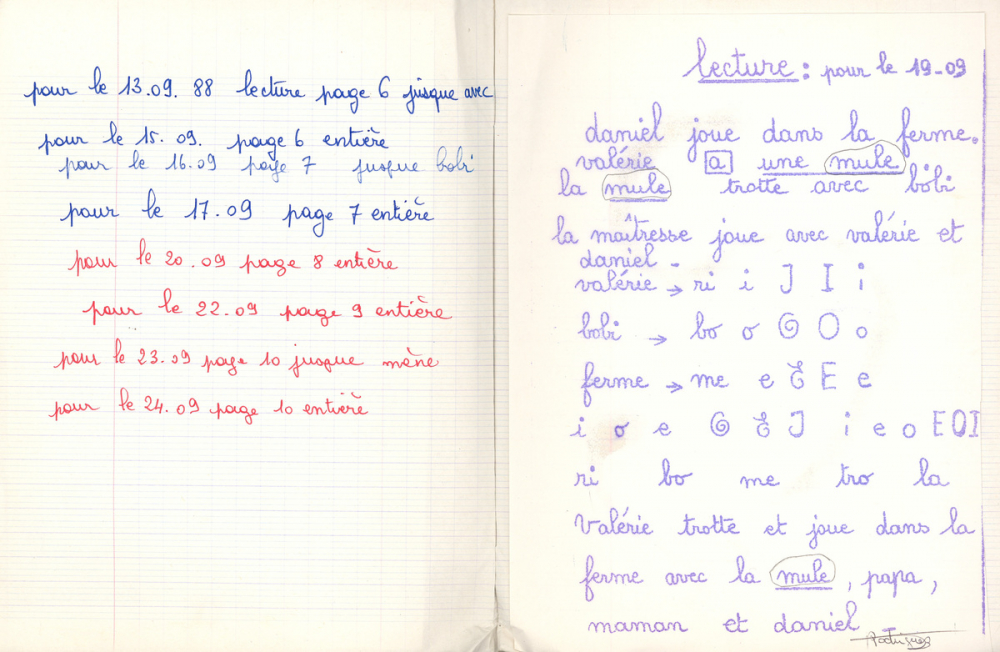 pour le 13.09.88 lecture page 6 jusque avec
pour le 15.09. page 6 entière
pour le 16.09 page 7 jusque bobi
pour le 17.09 page 7 entière
pour le 20.09 page 8 entière
pour le 22.09 page 9 entière
pour le 23.09 page 10 jusque mène
pour le 24.09 page 10 entière
lecture : pour le 19-09
daniel joue dans la ferme.
valérie a une mule
la mule trotte avec bobi
la maîtresse joue avec valérie et
daniel -
valérie → ri i J I i
bobi → bo o O O o
ferme → me e E E e
i o e O E J i e o E O I
ri bo me tro la
Valérie trotte et joue dans la
ferme avec la mule, papa,
maman et daniel
Rodriguez